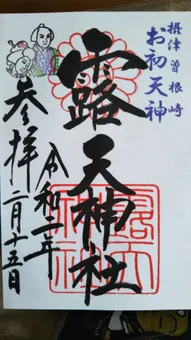 摂津 曽根崎
お初天神
露天神社
令和二年
参拝 二月十五日